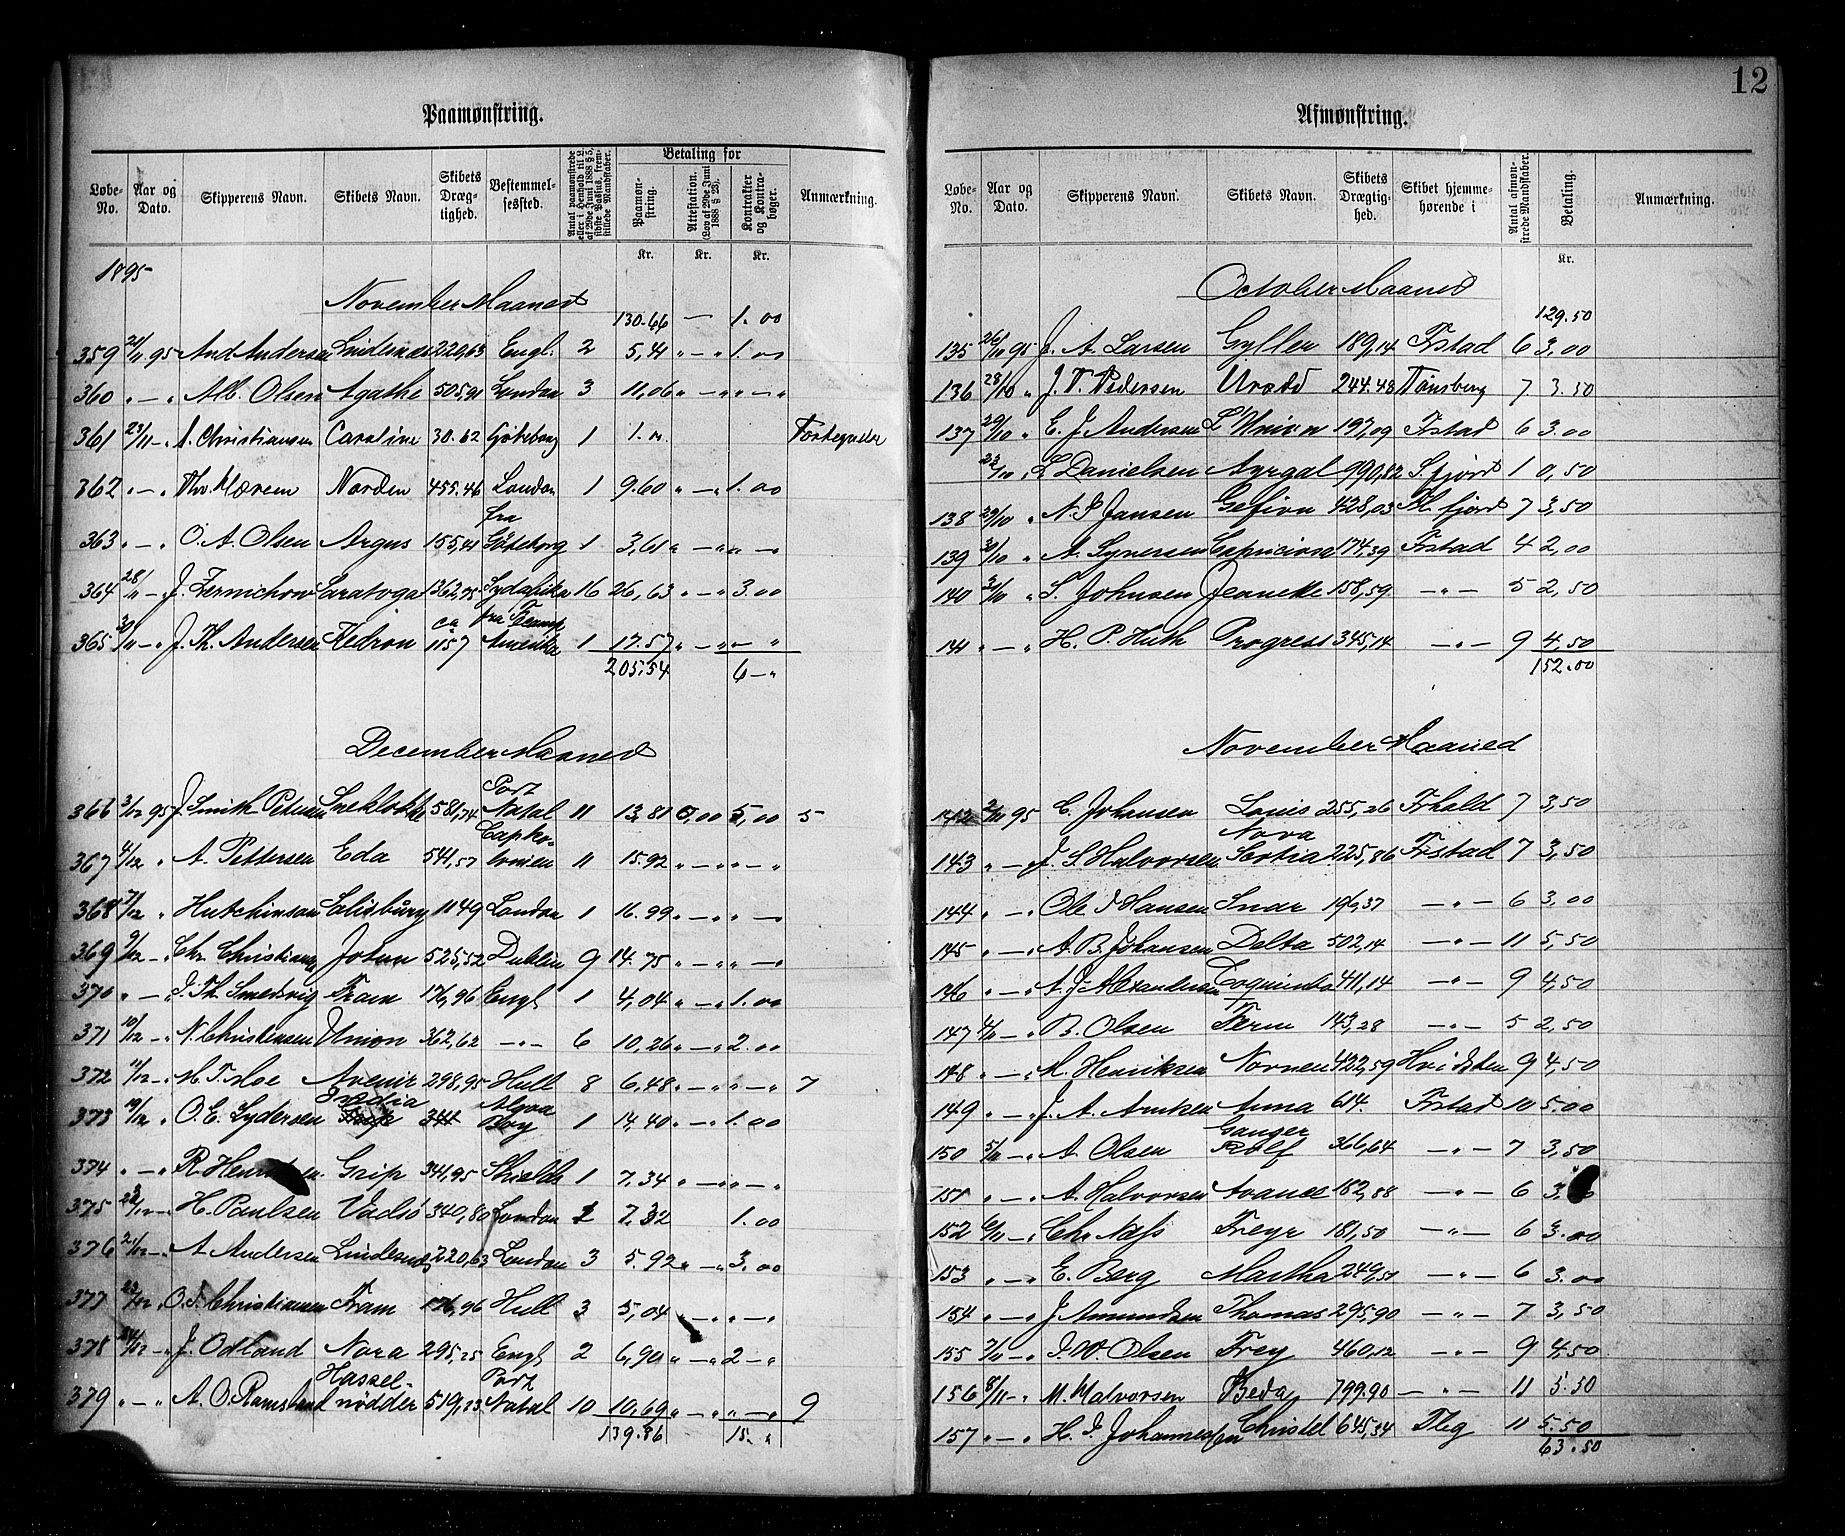 12
Paamønstring.
Løbe-No.	Aar og Dato.	Skipperens Navn.	Skibets Navn.	Skibets Dræg-tighed.	Bestemmel-sessted.	Antal paamønstrede eller i Henhold til L. af 29de Juni 1888 § 5, sidste Passus, frem-stillede Mandskaber.	Betaling for	Paamøn-string.	Attestation. (Lov af 29de Juni 1888 § 28).	Kontrakter og Kontra-bøger.	Anmærkning.
Kr.	Kr.	Kr.
1895
November Maaned
130.66 — 1.00
359 21/11 95 And Andersen Lindesnæs 220,63 Engl. 2 5,41 „ — „ 1.00
360 „ — „ Alb. Olsen Agathe 505,91 London 3 11,06 „ — „ „ — „
361 23/11 — „ A. Christiansen Caroline 30.62 Gøteborg 1 1. „
362 „ — „ Thv. Mærem Norden 455.46 London 1 9.60 „ — „ 1.00
363 „ — „ O. A. Olsen Argus 155,41 fra Göteborg 1 3,61 „ — „ „ — „
364 28/11 — „ J. Zernichow Saratoga 1362,95 Sydafrika 16 26,63 „ — „ 3.00
365 30/11 — „ J. Th. Andersen Kedron ca 1157 Amerika 1 17.57 „ — „ „ — „
205.54 6 — „
December Maaned
366 3/12 95 J. Smith Petersen Sneklokke 581,74 Port Natal 11 13,81 0,00 5,00 5
367 4/12 „ A. Pettersen Eda 541,57 Capko-lonien 11 15.92 „ — „ „ — „
368 7/12 „ Hutchinson Salisbury 1149 London 1 16.99 „ — „ „ — „
369 9/12 — „ Chr. Christians Jotun 525,52 Dublin 9 14.75 „ — „ „ — „
370 „ — „ J. Th. Smedsvig Fram 176,96 Engl 1 4,04 „ — „ 1.00
371 10/12 — „ N. Christensen Union 362,62 — „ — 6 10,26 „ — „ 2.00
372 11/12 — „ M. T. Moe Avenir 298,95 Hull 8 6,48 „ — „ „ — „ 7
373 19/12 „ O. E. Sydersen India 344 Algoa Bay 1 14,40 „ — „ 1.00
374 „ — „ R. Grip 341,95 Shields 1 7.34 „ — „ „ — „
375 H. Paulsen Vadsö 340,80 London 2 7.32 1.00
376 21/12 — „ A. Andersen Lindesnæs 220,63 London 3 5.92 „ — „ 3.00
377 23/12 „ O. J. Christiansen Fram 176,96 Hull 3 5,04 „ — „ „ — „
378 24/12 — „ J. Odland Nora 295,25 Engl 2 6,90 „ — „ 2 — „
379 „ — „ A. O. Ramsland Hassel-nødder 519,23 Port Natal 10 10,69 „ — „ „ — „ 9
139.86 15. „
Afmønstring.
Løbe-No.	Aar og Dato.	Skipperens Navn.	Skibets Navn.	Skibets Drægtig-hed.	Skibet hjemme-hørende i	Antal afmøn-strede Mandskaber.	Betaling.	Anmærkning.
Kr.
October Maaned
129.50
135 26/10 95 J. A. Larsen Gyller 189,14 Frstad 6 3.00
136 28/10 „ J. T. Pedersen Uræd 244.48 Tønsberg 7. 3.50
137 29/10 „ E. J. Andersen L'Union 197,09 Frstad 6 3.00
22/10 „ L Danielsen Ayrgal 990,82 S. fjord 1 0,50
138 29/10 „ N. S. Jansen Gefion 428,03 Kl. fjord 7 3,50
139 30/10 „ A. Synersen Capricioso 174,39 Frstad 4 2,00
140 31/10 „ S. Johnsen Jeanette 158,59 — „ — 5 2,50
141 „ — „ H. P. Huth Progress 345,14 — „ — 9 4,50
152.00
November Maaned
142 2/11 95 C. Johansen Louis 255,26 Frhald 7 3,50
143 „ — „ J. S. Halvorsen Nova Scotia 225,86 Frstad 7 3,50
144 „ — „ Ole J Hansen Snar 196,37 — „ — 6 3,00
145 „ — „ A. B. Johansen Delta 502,14 — „ — 11 5,50
146 „ — „ A. J. Alexandersen Coquimbo 441,14 — „ — 9 4,50
147 4/11 — „ B. Olsen Ferm 143,28 — „ — 5 2,50
148 „ — „ M. Henriksen Nornen 422,59 Hvidsten 9 4,50
149 „ — „ J. A. Arntzen Anna 614. Frstad 10 5.00
150 5/11 — „ A. Olsen Ganger Rolf 366,64 — „ — 7 3,50
151 „ — „ A. Halvorsen Avance 182,88 — „ — 6
152 6/11 — „ Chr Næss Freyr 181,50 — „ — 6 3.00
153 „ — „ E. Berg Martha 249,51 — „ — 6 3.00
154 „ — „ J Amundsen Thomas 295,90 — „ — 7 3,50
155 7/11 — „ J. W. Olsen Frey 460,12 — „ — 9 4,50
156 8/11 — „ M. Halvorsen Beda 799.90 — „ — 11 5.50
157 „ — „ H. J. Johannessen Christel 645,34 Fleg 11 5.50
63.50